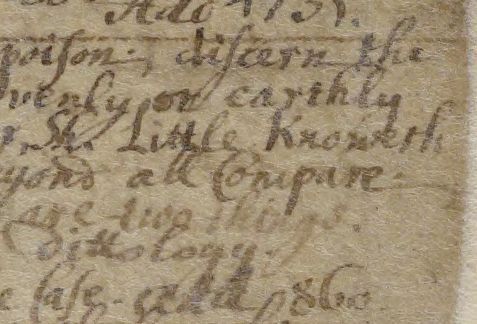 Ado 1731.
poison, discern the
venly or earthly
r, St. Little Knoweth
yond all Compare.
are two things.
dittology.
e Case. read 860.